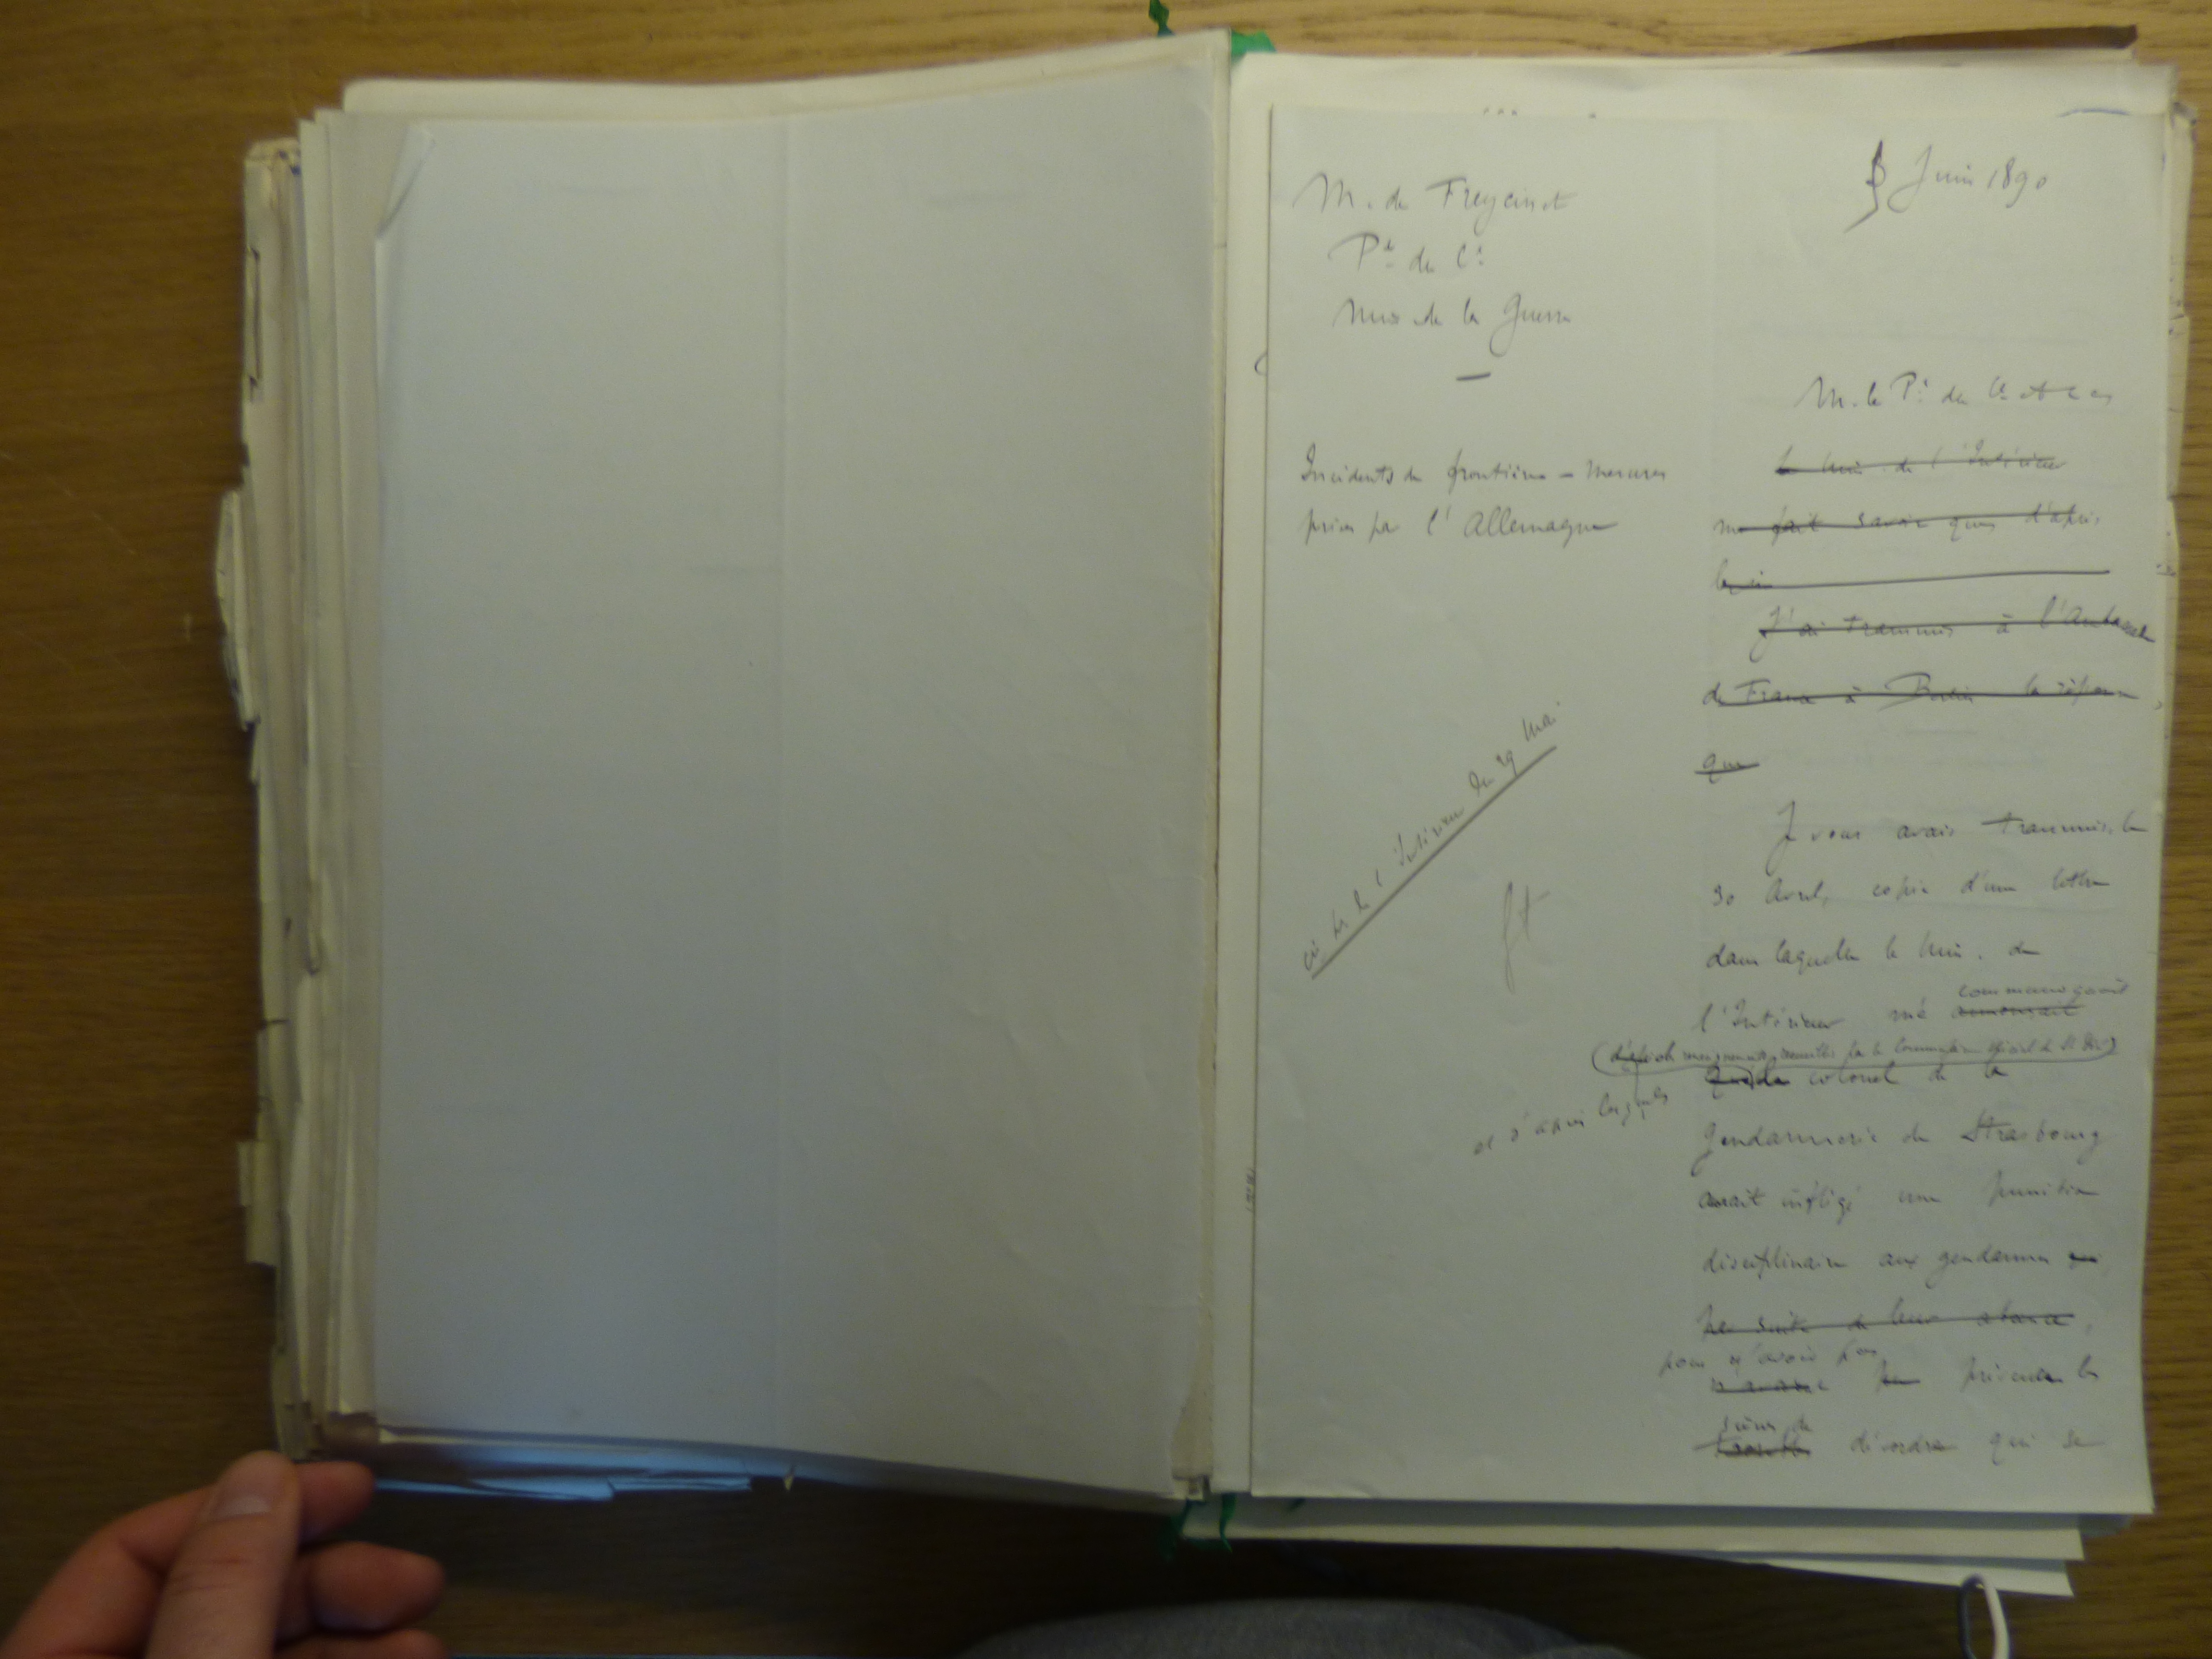 Juin 1890
M. de Freycinet
Pt du Cl
Min de la Guerre
Incidents de frontière - Mesures
prises par l'Allemagne
M. le Pt du Cl et
le Min. de l'Intérieur
me fait savoir que d'après
J'ai transmis à l'Ambassade
de France à Berlin la réponse
que
Je vous avais transmis, le
30 Avril, copie d'une lettre
dans laquelle le Min. de
l'Intérieur me annonçait
de l'Intérieur du 29 Mai
renseignements recueillis par le Commissaire spécial de
et d'après lesquels
colonel de la
Gendarmerie de Strasbourg
aurait infligé une punition
disciplinaire aux gendarmes
par suite de leur absence,
pour n'avoir pas
prévenu les
scènes de
désordre qui se